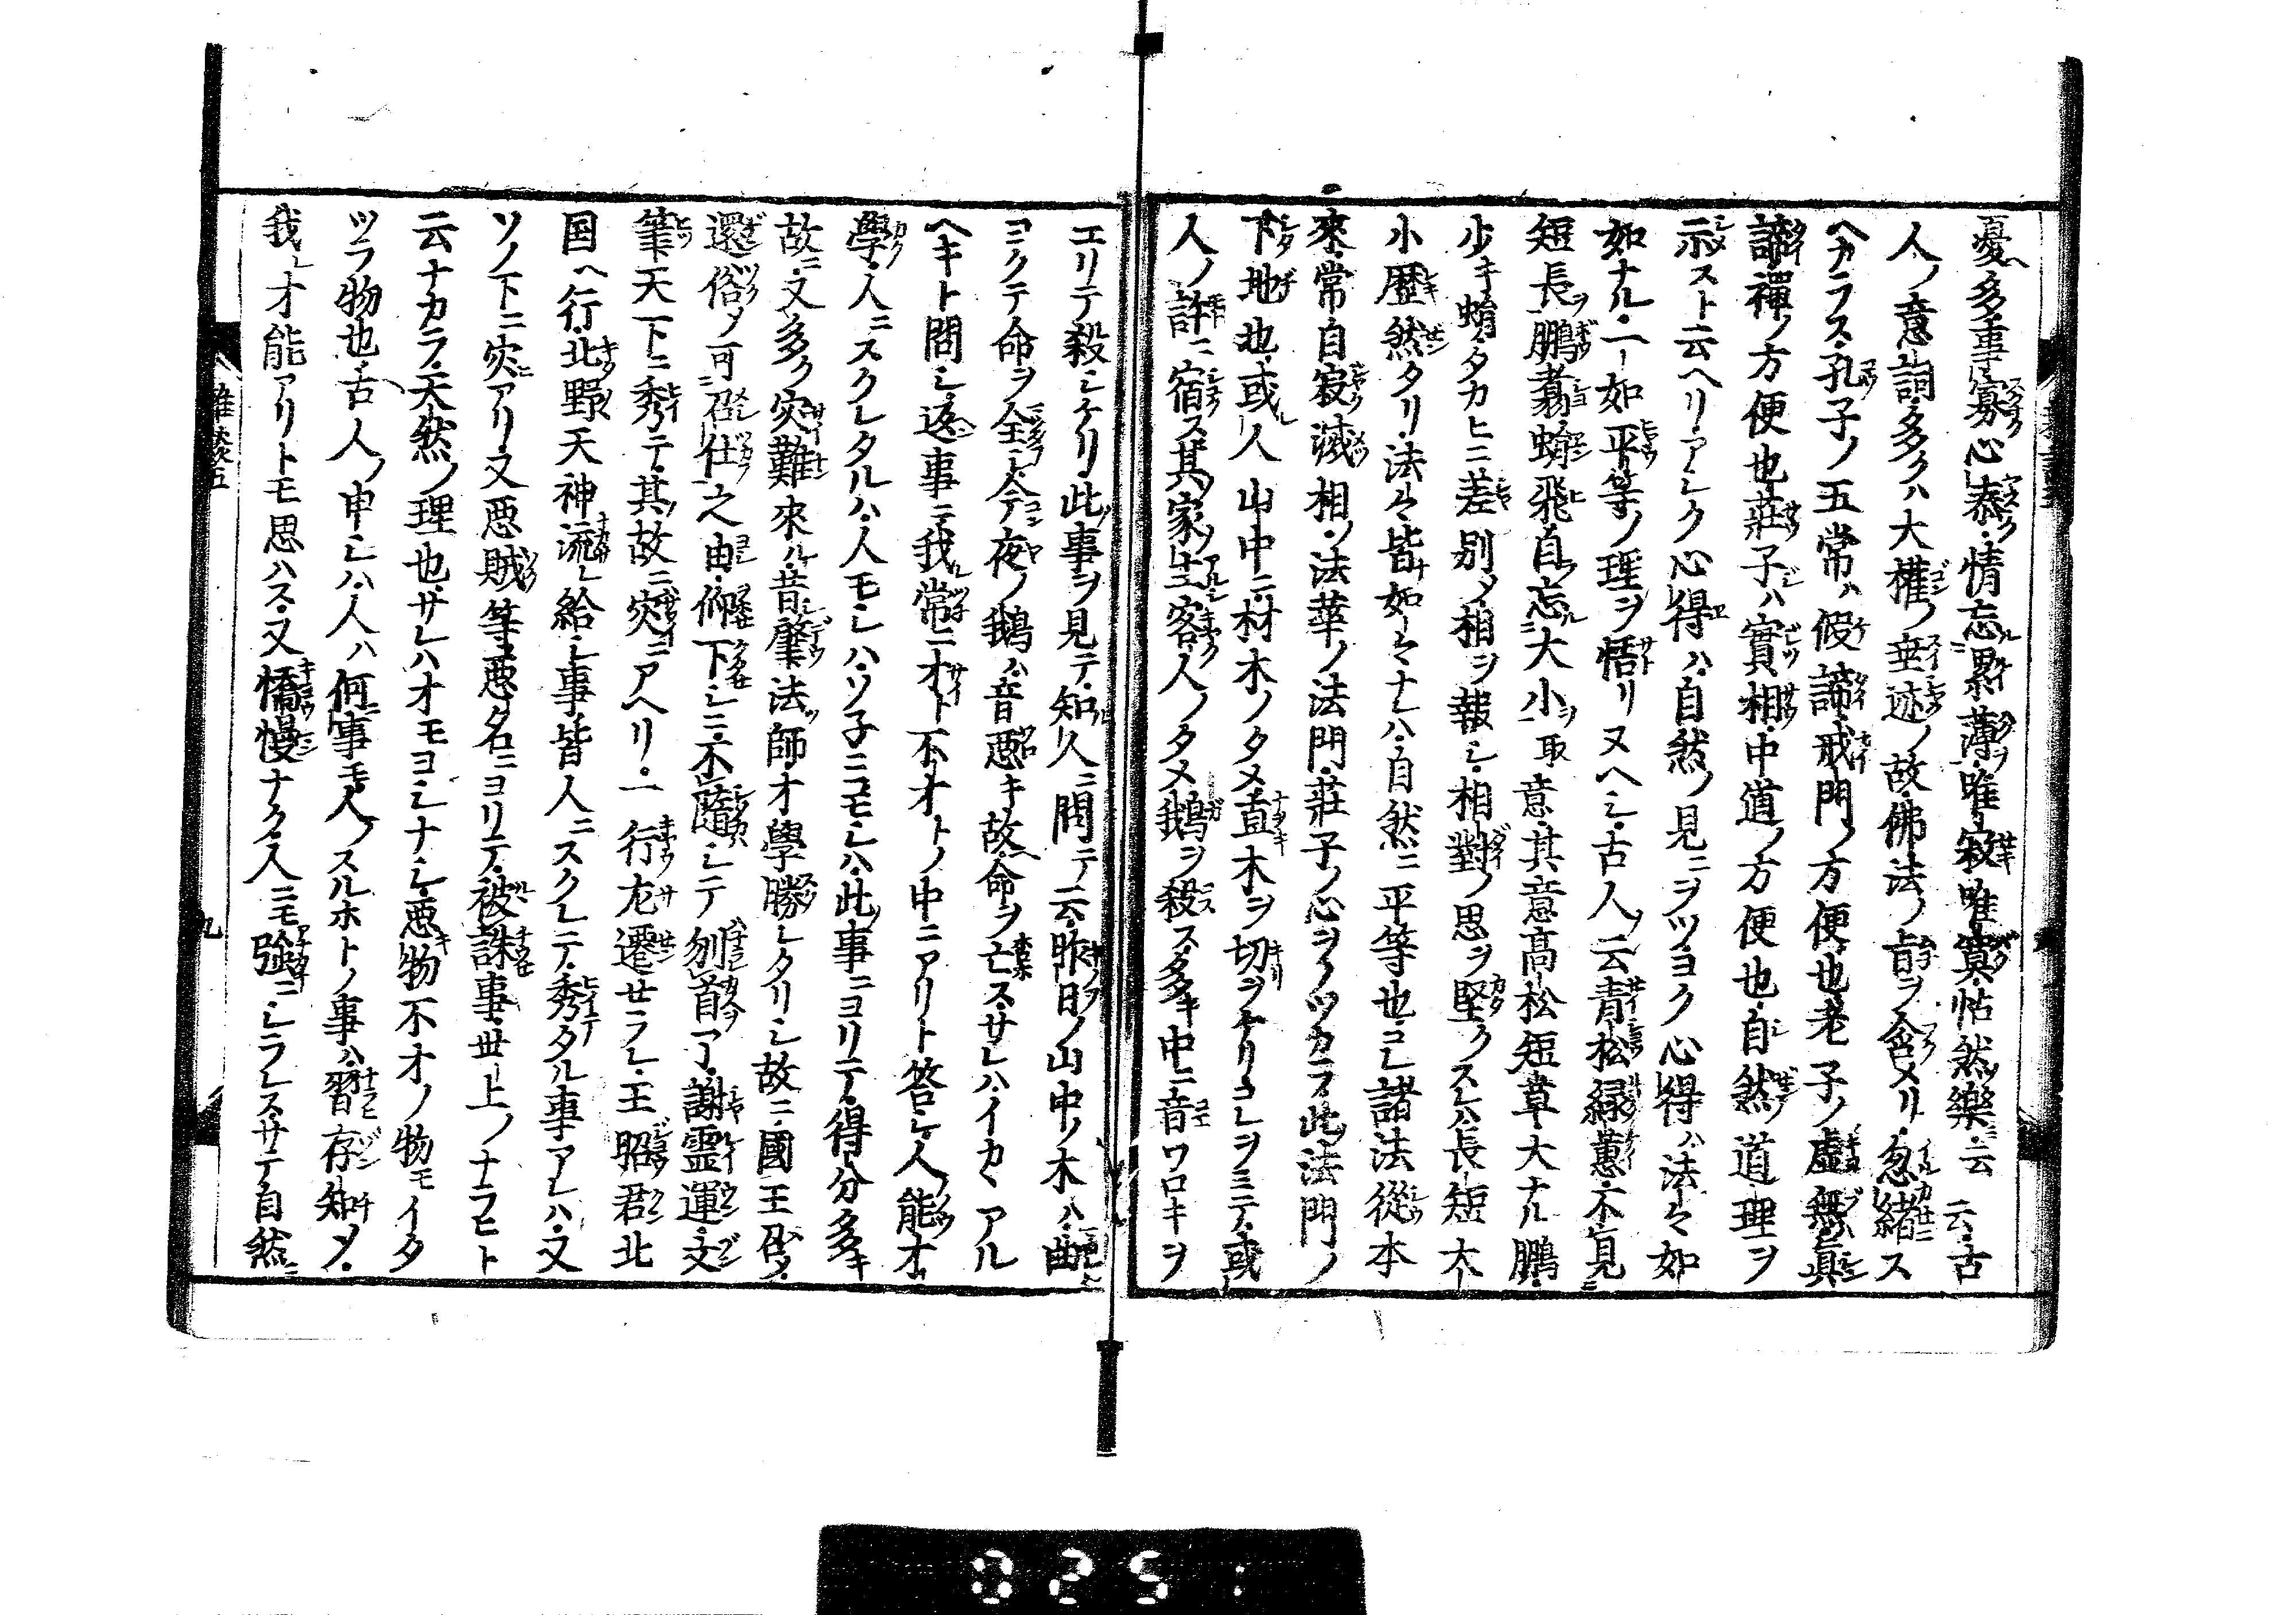 憂多事寡心泰情忘累薄唯寂唯寞怗然樂云云古
人ノ意詞多クハ大權ノ垂迹ノ故佛法ノ旨ヲ含メリ忽緒ス
ヘカラス孔子ノ五常ハ假諦戒門ノ方便也老子ノ虚無眞
諦禪ノ方便也莊子ハ實相中道ノ方便也自然ノ道理ヲ
示スト云ヘリアシク心得ハ自然ノ見ニヲツヨク心得ハ法々如
如ナル一如平等ノ理ヲ悟リヌヘシ古人ノ云青松緑蕙不見
短長鵬翥蜎飛自忘大小取意其意高松短草大ナル鵬
少キ蜎タカヒニ差別ノ相ヲ報シ相對ノ思ヲ堅クスレハ長短大
小歴然タリ法々皆如々ナレハ自然ニ平等也コレ諸法從本
來常自寂滅相ノ法華ノ法門莊子ノ心ヲノツカラ此法門ノ
下地也或人山中ニ材木ノタメ直木ヲ切ヲヤリコレヲミテ或
人ノ許ニ宿ス其家ノ主客人ノタメ鵝ヲ殺ス多キ中ニ音ワロキヲ
エリテ殺シケリ此事ヲ見テ知人ニ問テ云昨日ノ山中ノ木ハ曲
ヨクテ命ヲ全シ今夜ノ鵝ハ音惡キ故命ヲ亡スサレハイカヽアル
ヘキト問シ返事ニ我常ニ才ト不才トノ中ニアリト答シ人ノ能才
學人ニスクレタルハ人モシハソ子ニコモシハ此事ニヨリテ得分多キ
故ニ又多ク災難來ル昔肇法師才學勝レタリシ故ニ國王
還俗メ可召仕之由仰下シニ不隨シテ刎首了謝霊運文
筆天下ニ秀テ其故ニ災ニアヘリ一行左遷セラレ王昭君北
国ヘ行北野天神流レ給シ事皆人ニスクレテ秀タル事アレハ又
ソノ下ニ災アリ又惡賊等惡名ニヨリテ被誅事世上ノナラヒト
云ナカラ天然ノ理也サレハオモヨシナシ惡物不才ノ物モイタ
ツラ物也古人ノ申シハ人ハ何事モ人ノスルホトノ事ハ習存知メ
我レ才能アリトモ思ハス又憍慢ナク人ニモ強ニシラレスサテ自然ニ
雜談五
九
0251